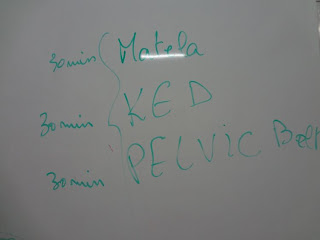 30min Matela
30min KED
30min PELVIC Belt